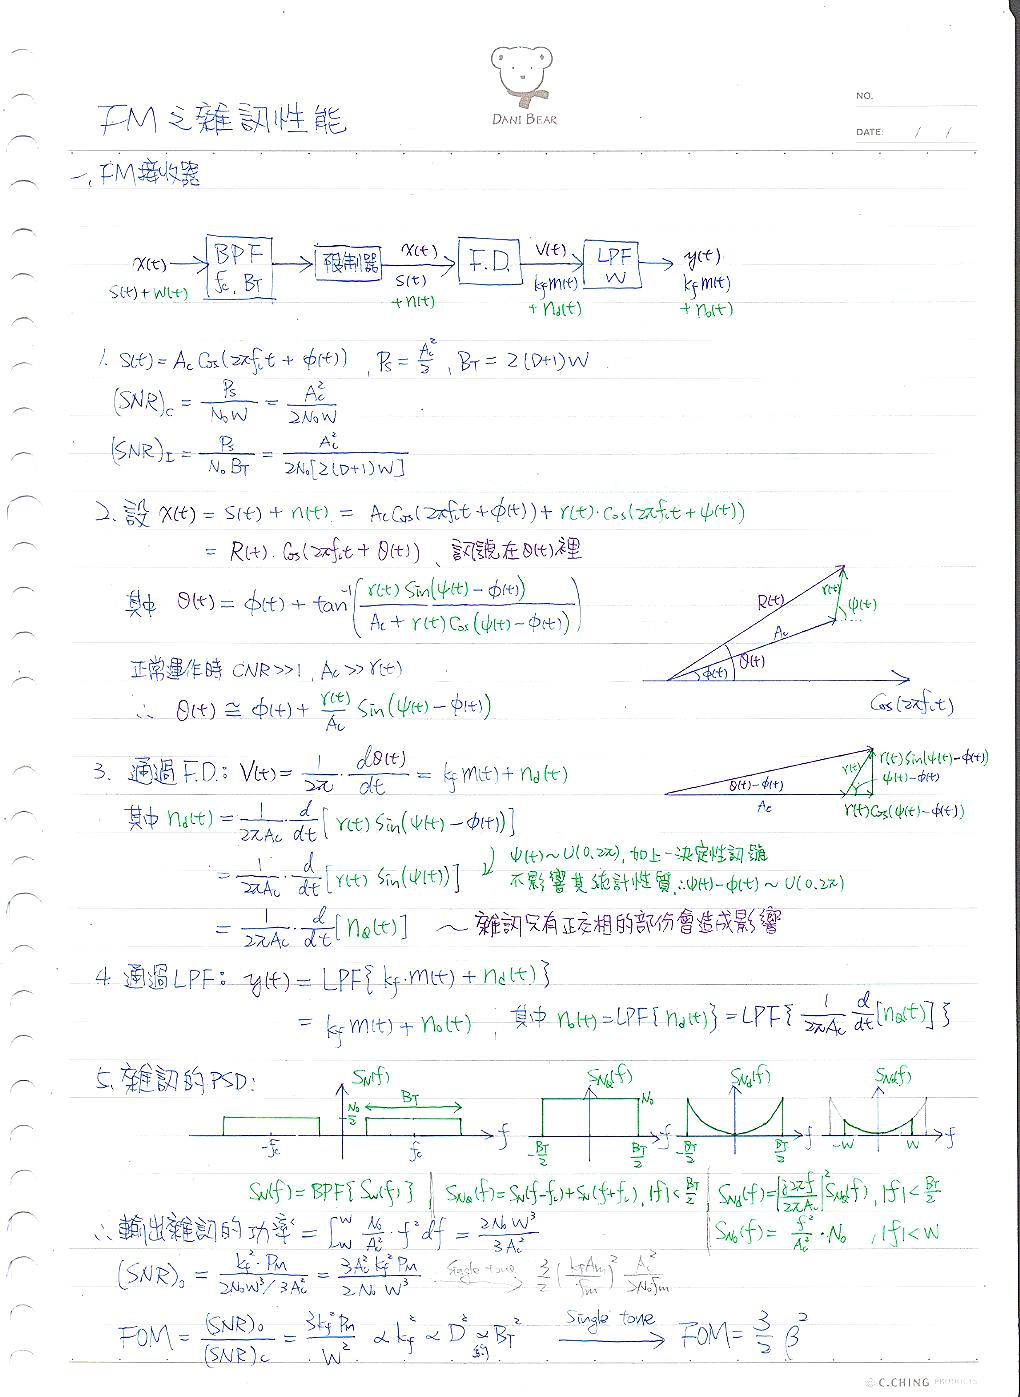 DANI BEAR
NO.
DATE: / /
FM之雜訊性能
一、FM接收器
x(t) → BPF fc, BT → 限制器 → x(t) → F.D. → v(t) → LPF W → y(t)
s(t)+w(t) s(t)+n(t) kf m(t)+nd(t) kf m(t)+no(t)
1. s(t) = Ac Cos(2πfct + φ(t)) , Ps = Ac²/2 , BT = 2(D+1)W
(SNR)c = Ps/(N₀W) = Ac²/(2N₀W)
(SNR)I = Ps/(N₀BT) = Ac²/(2N₀[2(D+1)W])
2. 設 x(t) = s(t) + n(t) = Ac Cos(2πfct + φ(t)) + r(t)·Cos(2πfct + ψ(t))
= R(t)·Cos(2πfct + θ(t)) 、訊號在θ(t)裡
其中 θ(t) = φ(t) + tan⁻¹( r(t) Sin(ψ(t)-φ(t)) / (Ac + r(t) Cos(ψ(t)-φ(t))) )
R(t) r(t) ψ(t) Ac φ(t) θ(t) Cos(2πfct)
正常運作時 CNR>>1, Ac>>r(t)
∴ θ(t) ≅ φ(t) + r(t)/Ac Sin(ψ(t)-φ(t))
3. 通過F.D.: v(t) = 1/2π · dθ(t)/dt = kf m(t) + nd(t)
θ(t)-φ(t) Ac r(t) r(t)Sin(ψ(t)-φ(t)) ψ(t)-φ(t) r(t)Cos(ψ(t)-φ(t))
其中 nd(t) = 1/(2πAc) · d/dt [r(t) Sin(ψ(t)-φ(t))]
= 1/(2πAc) · d/dt [r(t) Sin(ψ(t))] ψ(t)~U(0,2π), 加上一決定性訊號
不影響其統計性質, ∴ψ(t)-φ(t) ~ U(0,2π)
= 1/(2πAc) · d/dt [nQ(t)] ~ 雜訊只有正交相的部份會造成影響
4. 通過LPF: y(t) = LPF{kf·m(t) + nd(t)}
= kf m(t) + no(t) , 其中 no(t) = LPF{nd(t)} = LPF{ 1/(2πAc) d/dt [nQ(t)] }
5. 雜訊的PSD:
SN(f) N₀/2 BT -fc fc f
SNQ(f) N₀ -BT/2 BT/2 f
SNd(f) -BT/2 BT/2 f
SNo(f) -W W f
SN(f) = BPF{Sw(f)} | SNQ(f) = SN(f-fc) + SN(f+fc), |f|<BT/2 | SNd(f) = |j2πf/2πAc|² SNQ(f), |f|<BT/2
SNo(f) = f²/Ac² · N₀ , |f|<W
∴輸出雜訊的功率 = ∫-W^W N₀/Ac² · f² df = 2N₀W³/3Ac²
(SNR)o = kf²·Pm/(2N₀W³/3Ac²) = 3Ac²kf²Pm/(2N₀W³) single tone → 3/2 (kfAm/fm)² Ac²/(2N₀fm)
FOM = (SNR)o/(SNR)c = 3kf²Pm/W² ∝ kf² ∝ D² ∝約 BT² Single tone → FOM = 3/2 β²
© C.CHING PRODUCTS